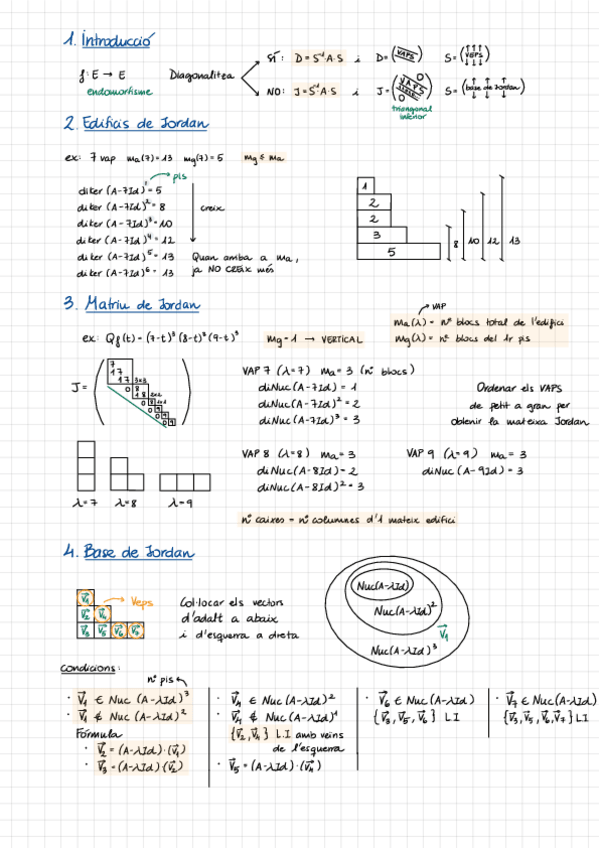 1. Introducció
SÍ: D=S⁻¹A·S i D=(VAPS) S=(VEPS)
f: E → E Diagonalitea
endomorfisme
NO: J=S⁻¹A·S i J=(VAPS 0 0) S=(base de Jordan)
triangonal inferior
2. Edificis de Jordan
ex: 7 vap ma(7)=13 mg(7)=5 mg ≤ ma
pis
di ker (A-7Id)¹ = 5
di ker (A-7Id)² = 8
di ker (A-7Id)³ = 10
di ker (A-7Id)⁴ = 12
di ker (A-7Id)⁵ = 13
di ker (A-7Id)⁶ = 13
creix
Quan arriba a ma,
ja NO CREIX més
1
2
2
3
5
8 10 12 13
3. Matriu de Jordan
VAP
ex: Qf(t) = (7-t)³ (8-t)³ (9-t)³
mg=1 → VERTICAL
ma(λ) = nº blocs total de l'edifici
mg(λ) = nº blocs del 1r pis
J=
7
1 7
1 7 3x3
0 8
1 8 2x2
0 8 1x1
0 9
0 9
0 9
VAP 7 (λ=7) ma = 3 (nº blocs)
diNuc(A-7Id) = 1
diNuc(A-7Id)² = 2
diNuc(A-7Id)³ = 3
Ordenar els VAPS
de petit a gran per
obtenir la mateixa Jordan
VAP 8 (λ=8) ma = 3
diNuc(A-8Id) = 2
diNuc(A-8Id)² = 3
VAP 9 (λ=9) ma = 3
diNuc(A-9Id) = 3
λ=7 λ=8 λ=9
nº caixes = nº columnes d'1 mateix edifici
4. Base de Jordan
V₁
V₂ V₄
V₃ V₅ V₆ V₇
Veps
Col·locar els vectors
d'adalt a abaix
i d'esquerra a dreta
Nuc(A-λId)
Nuc(A-λId)²
V₁
Nuc(A-λId)³
Condicions:
nº pis
· V₁ ∈ Nuc (A-λId)³
· V₁ ∉ Nuc (A-λId)²
Fórmula
· V₂ = (A-λId)·(V₁)
· V₃ = (A-λId)(V₂)
· V₄ ∈ Nuc (A-λId)²
· V₄ ∉ Nuc (A-λId)¹
{V₂, V₄} L.I amb veïns
de l'esquerra
· V₅ = (A-λId)·(V₄)
· V₆ ∈ Nuc (A-λId)
{V₃, V₅, V₆} L.I
· V₇ ∈ Nuc(A-λId)
{V₃, V₅, V₆, V₇} L.I